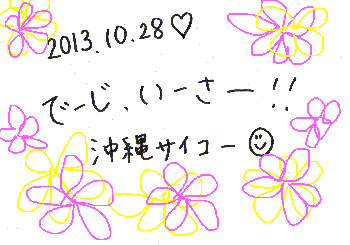 2013.10.28♡
でーじ、いーさー!!
沖縄サイコー☺